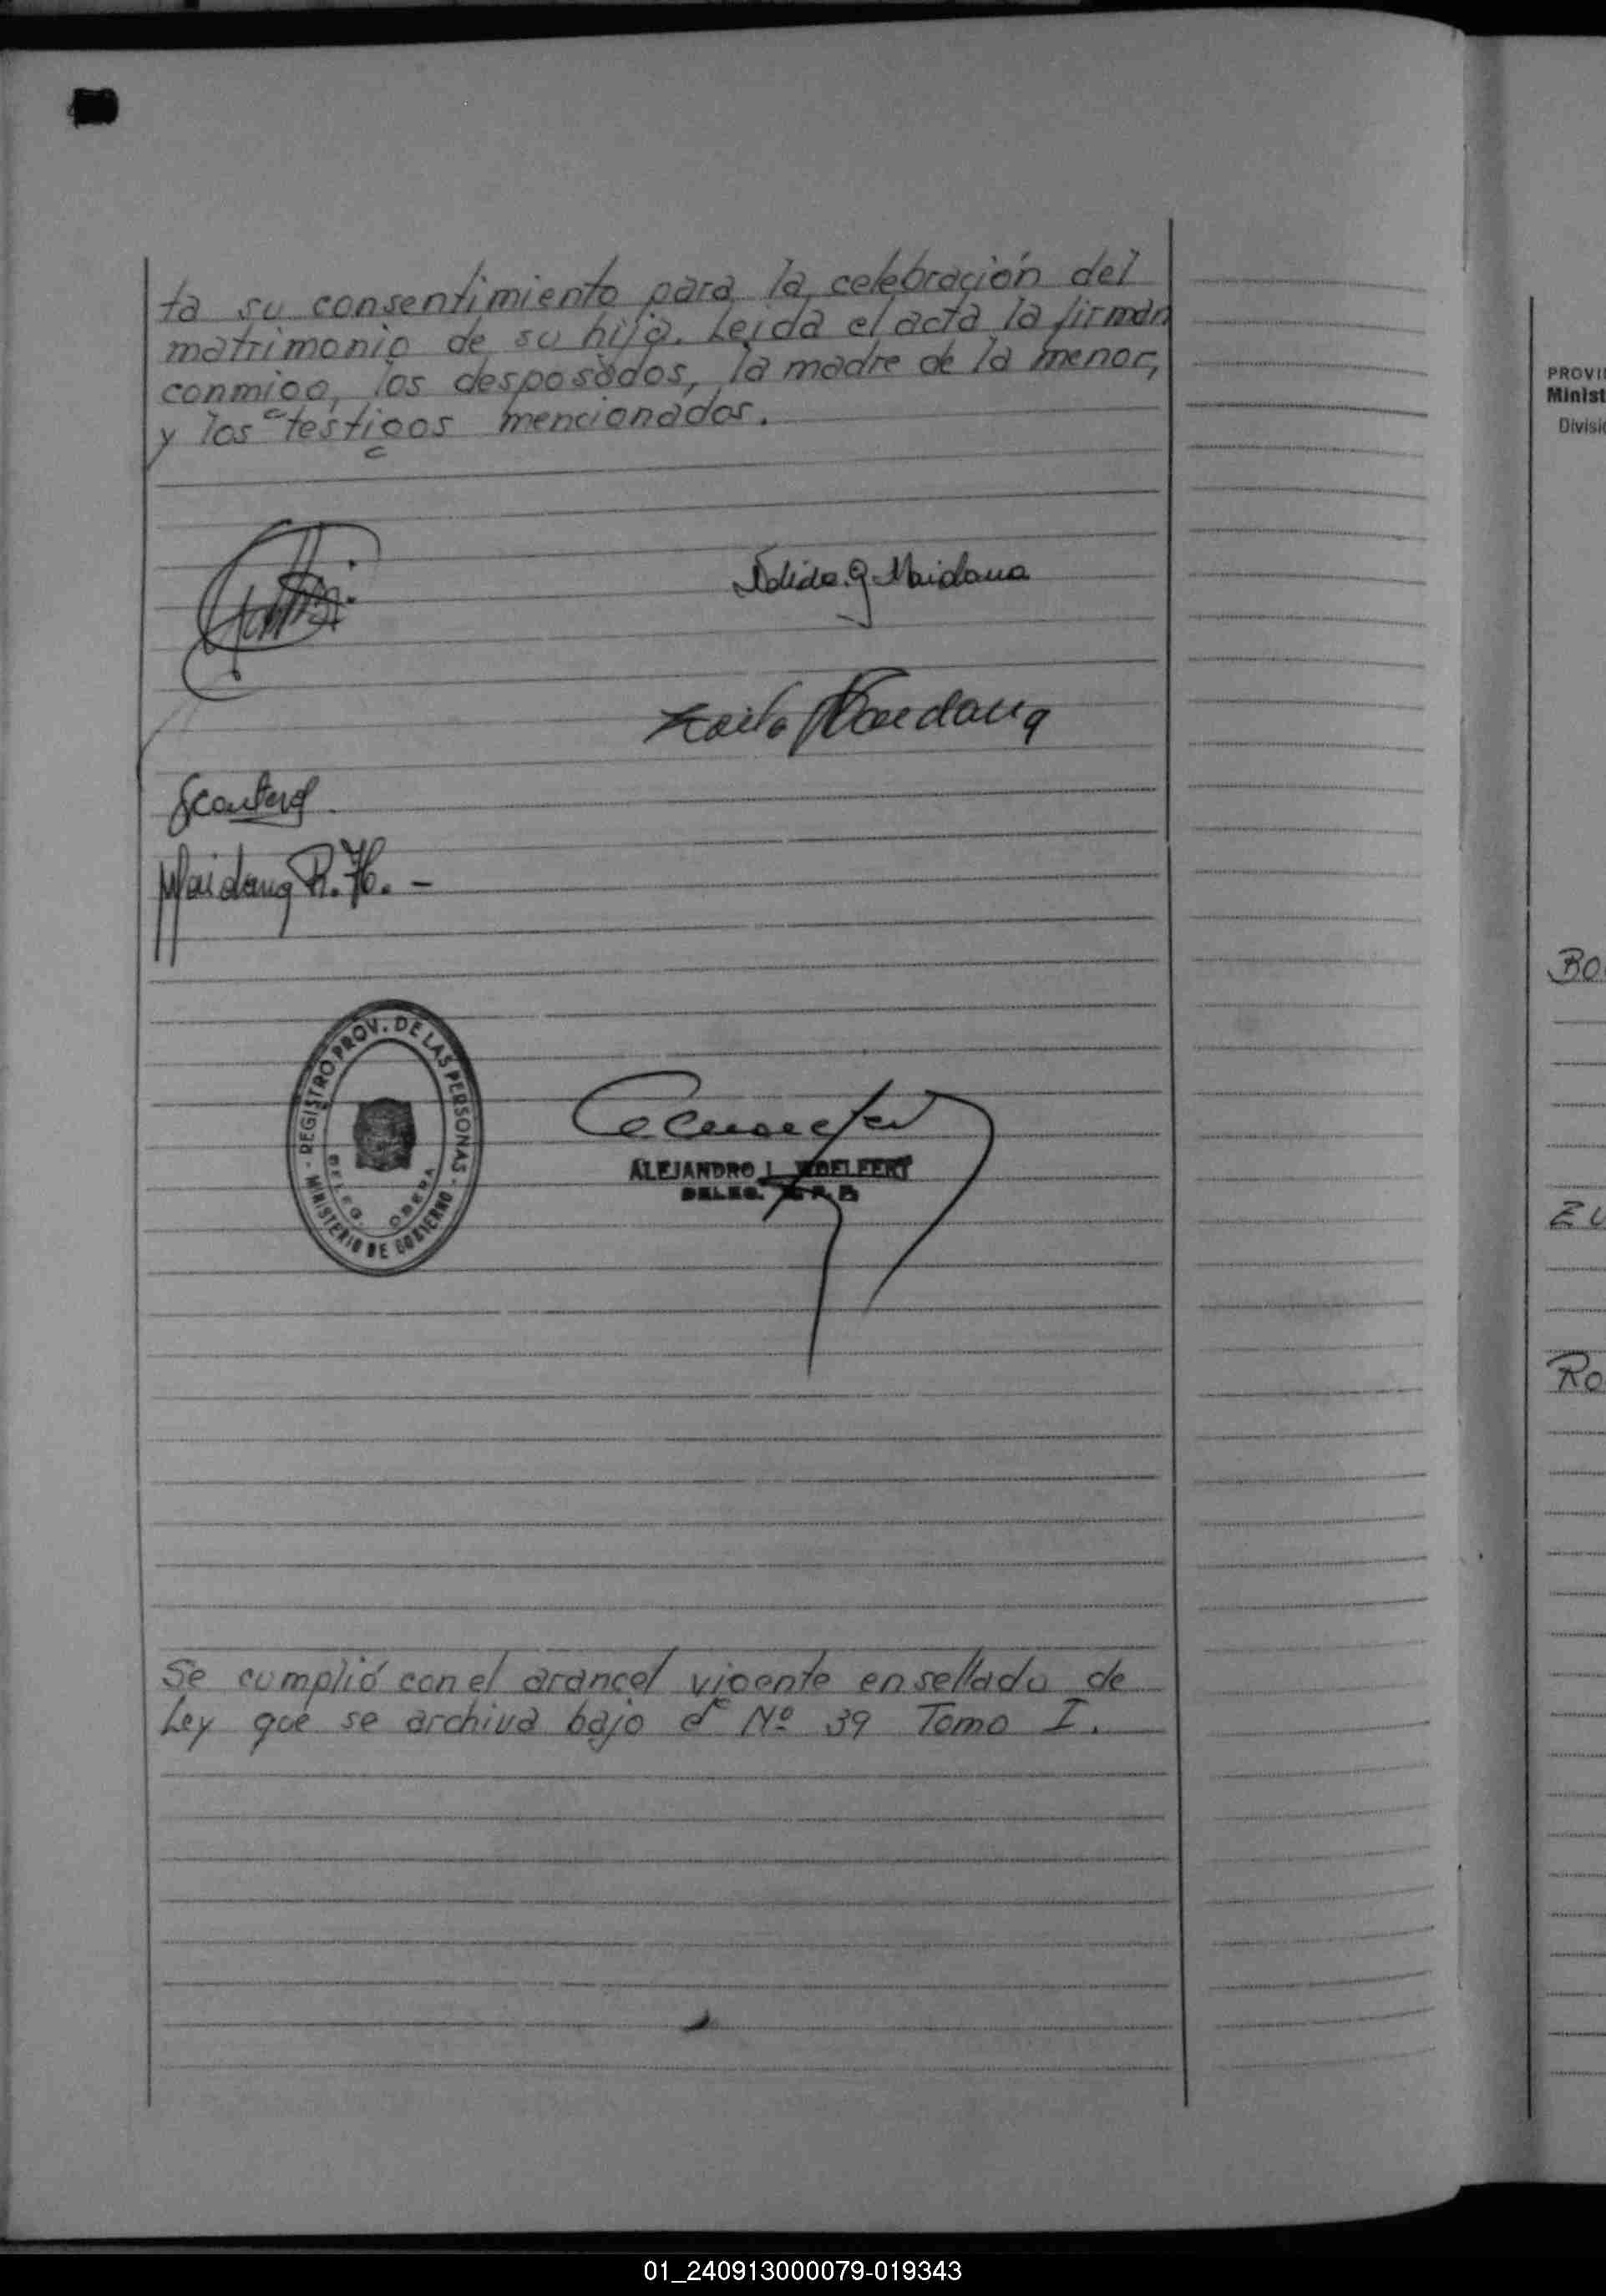 ta su consentimiento para la celebración del
matrimonio de su hija. Leida el acta la firman
conmigo, los desposados, la madre de la menor,
y los testigos mencionados.
Nélida G. Maidana
Maidana
Maidana R. H. -
- REGISTRO PROV. DE LAS PERSONAS -
MINISTERIO DE GOBIERNO
DELEG. OBERA
ALEJANDRO
DELEG.
Se cumplió con el arancel vigente en sellado de
Ley que se archiva bajo el Nº 39 Tomo I.
PROVI
Minist
Divisi
BO
ZU
RO
01_240913000079-019343